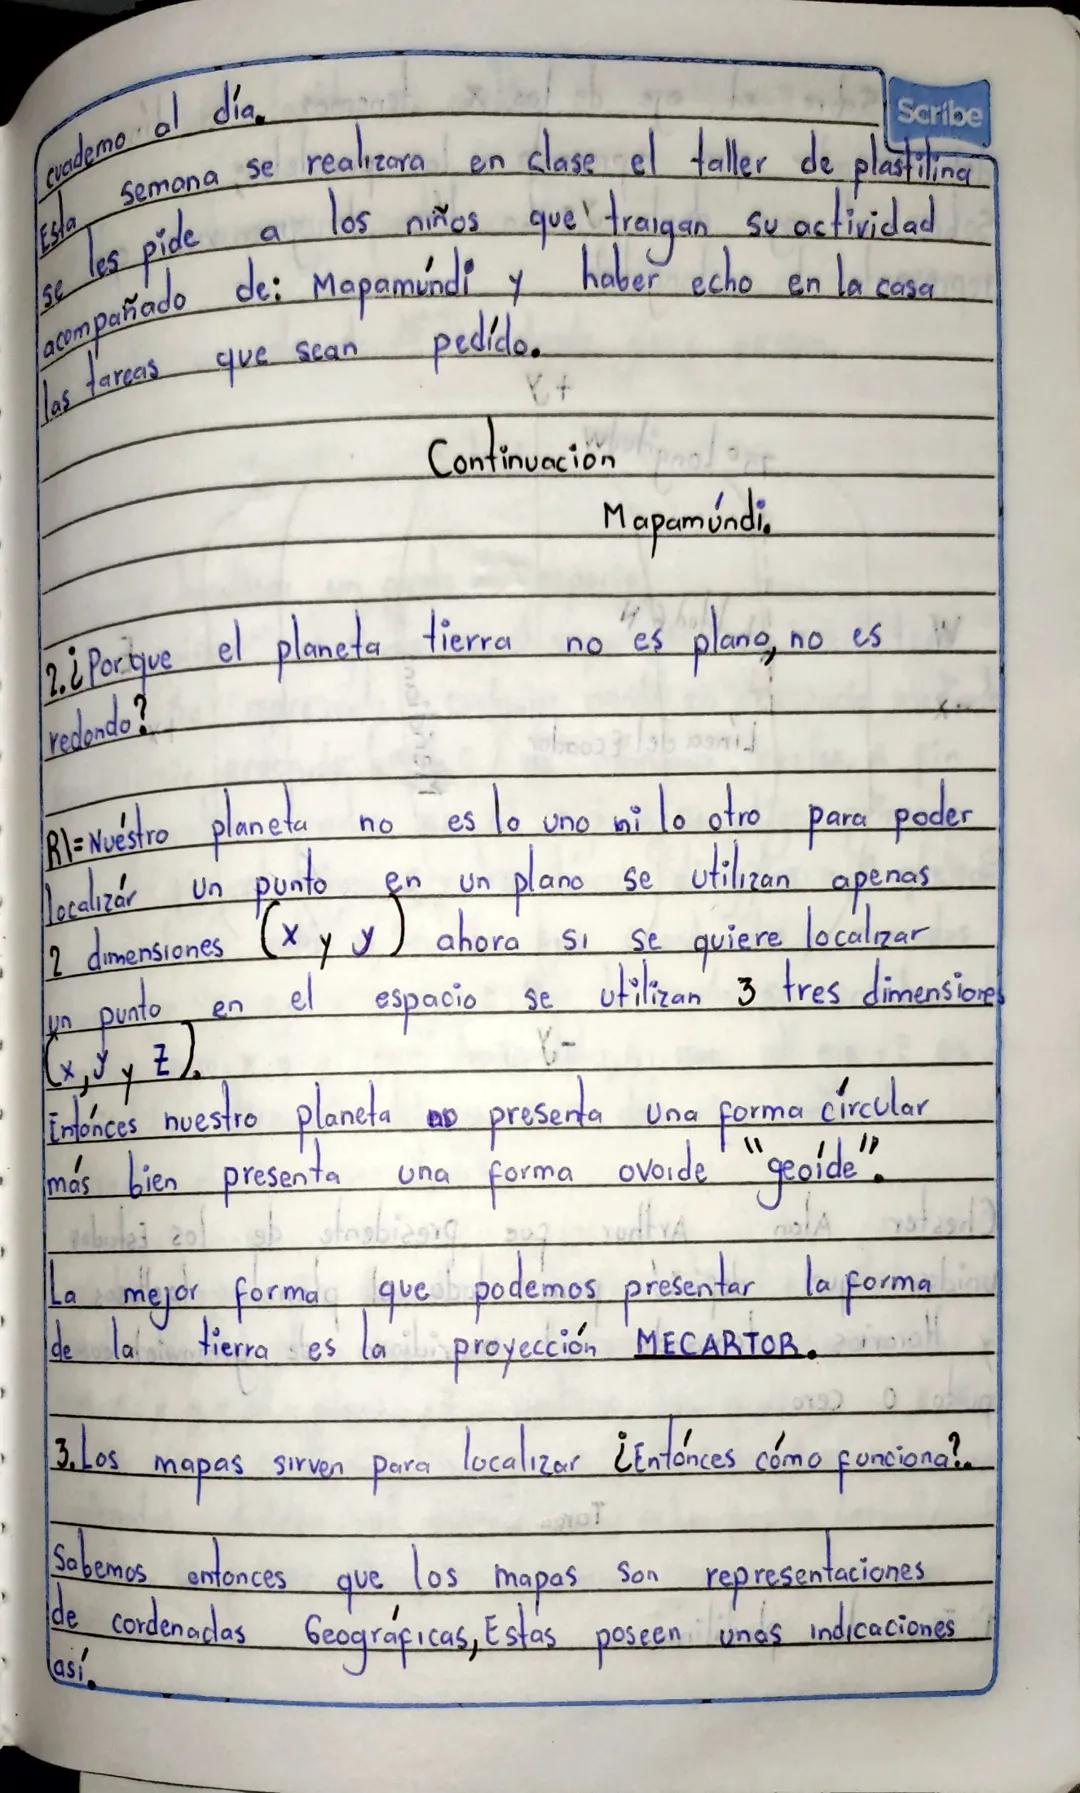 Scribe
cuaderno al día.
Esta semana se realizara en clase el taller de plastilina
se les pide a los niños que traigan su actividad
acompañado de: Mapamúndi y haber echo en la casa
las tareas que sean pedído.
Continuación
Mapamúndi.
2. ¿Porque el planeta tierra no es plano, no es
redondo?
R\= Nuéstro planeta no es lo uno ni lo otro para poder
localizár un punto en un plano se utilizan apenas
2 dimensiones (x y y) ahora si se quiere localizar
un punto en el espacio se utilizan 3 tres dimensiones
(x, y y z).
Entónces nuestro planeta no presenta una forma círcular
más bien presenta una forma ovoide "geoíde".
La mejor forma que podemos presentar la forma
de la tierra es la proyección MECARTOR.
3. Los mapas sirven para localizar ¿Entónces cómo funciona?.
Sabemos entonces que los mapas son representaciones
de cordenadas Geográficas, Estás poseen unas indicaciones
así.